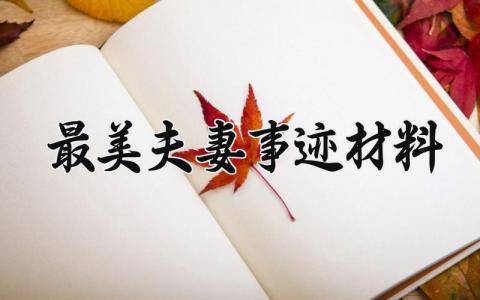 最美夫妻事迹材料